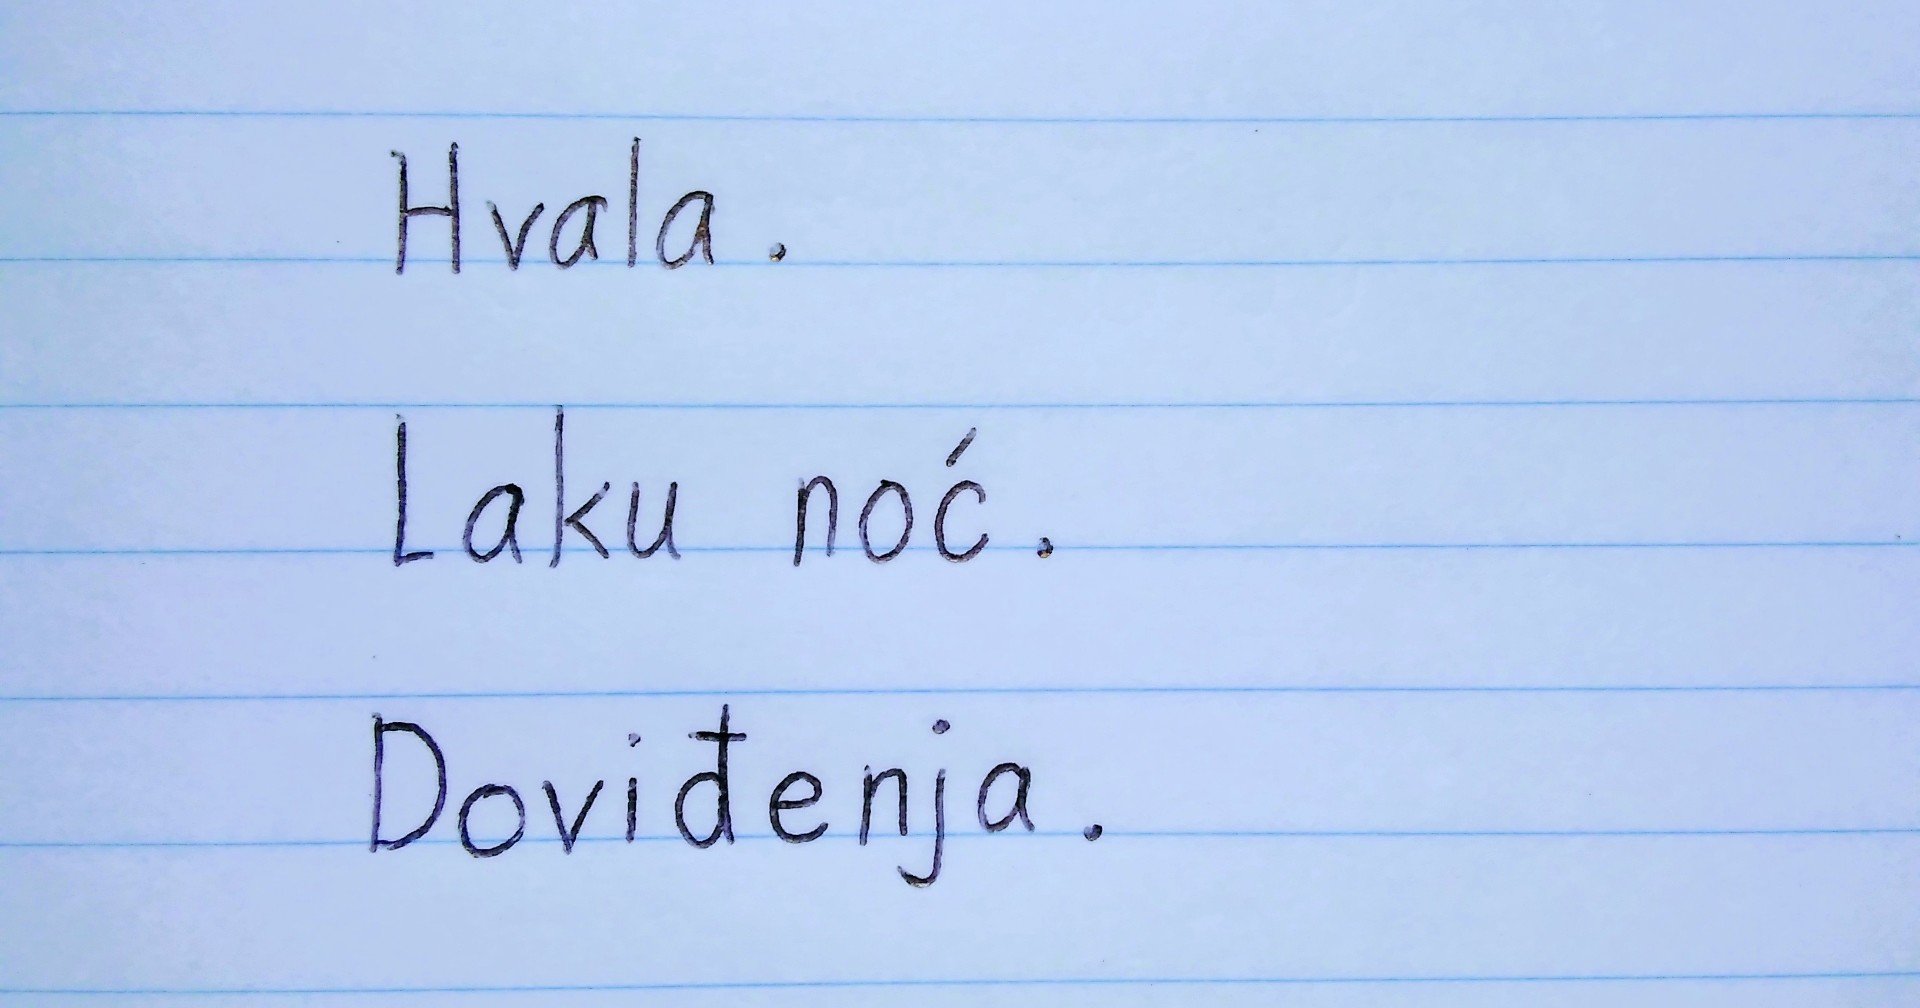 Hvala.
Laku noć.
Doviđenja.